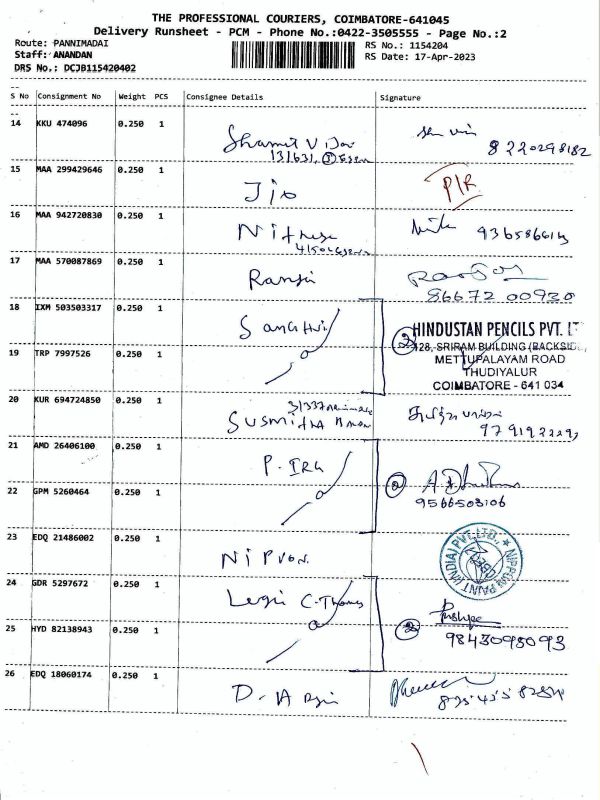 THE PROFESSIONAL COURIERS, COIMBATORE-641045
Delivery Runsheet - PCM - Phone No.:0422-3505555 - Page No.:2
Route: PANNIMADAI
RS No.: 1154204
Staff: ANANDAN
RS Date: 17-Apr-2023
DRS No.: DCJB115420402
S No Consignment No Weight PCS Consignee Details Signature
14 KKU 474096 0.250 1
8220298182
15 MAA 299429646 0.250 1 Jio P/R
16 MAA 942720830 0.250 1 Nithese
17 MAA 570087869 0.250 1 Ranjii
86672 00930
18 IXM 503503317 0.250 1
HINDUSTAN PENCILS PVT. LT
128, SRIRAM BUILDING (BACKSIDE
19 TRP 7997526 0.250 1
METTUPALAYAM ROAD
THUDIYALUR
COIMBATORE - 641 034
20 KUR 694724850 0.250 1 Susmitha
21 AMD 26406100 0.250 1
22 GPM 5260464 0.250 1
9566508106
23 EDQ 21486002 0.250 1 Nippon
NIPPON PAINT (INDIA) PVT. LTD.,
24 GDR 5297672 0.250 1 C. Thomas
25 HYD 82138943 0.250 1
9843095093
26 EDQ 18060174 0.250 1